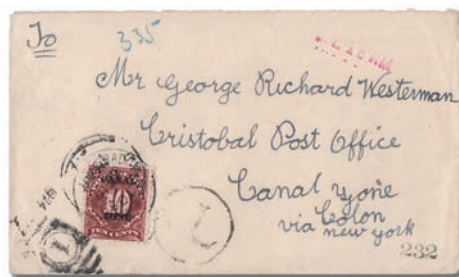 To
335
Mr George Richard Westerman
Cristobal Post Office
Canal Zone
via Colon
new york
CANAL
ZONE
10
TEN CENTS
1
232